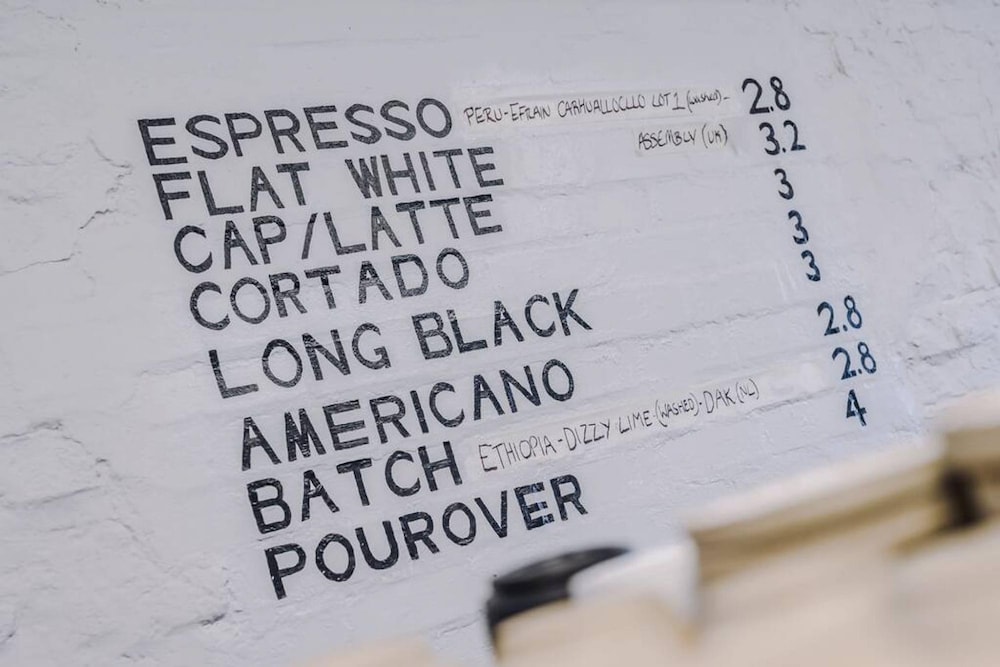 ESPRESSO PERU-EFRAIN CARHUALLOCLLO LOT 1 (WASHED)- 2.8
FLAT WHITE ASSEMBLY (UK) 3.2
CAP/LATTE 3
CORTADO 3
LONG BLACK 3
AMERICANO 2.8
BATCH ETHIOPIA-DIZZY LIME-(WASHED)-DAK (NL) 2.8
POUROVER 4